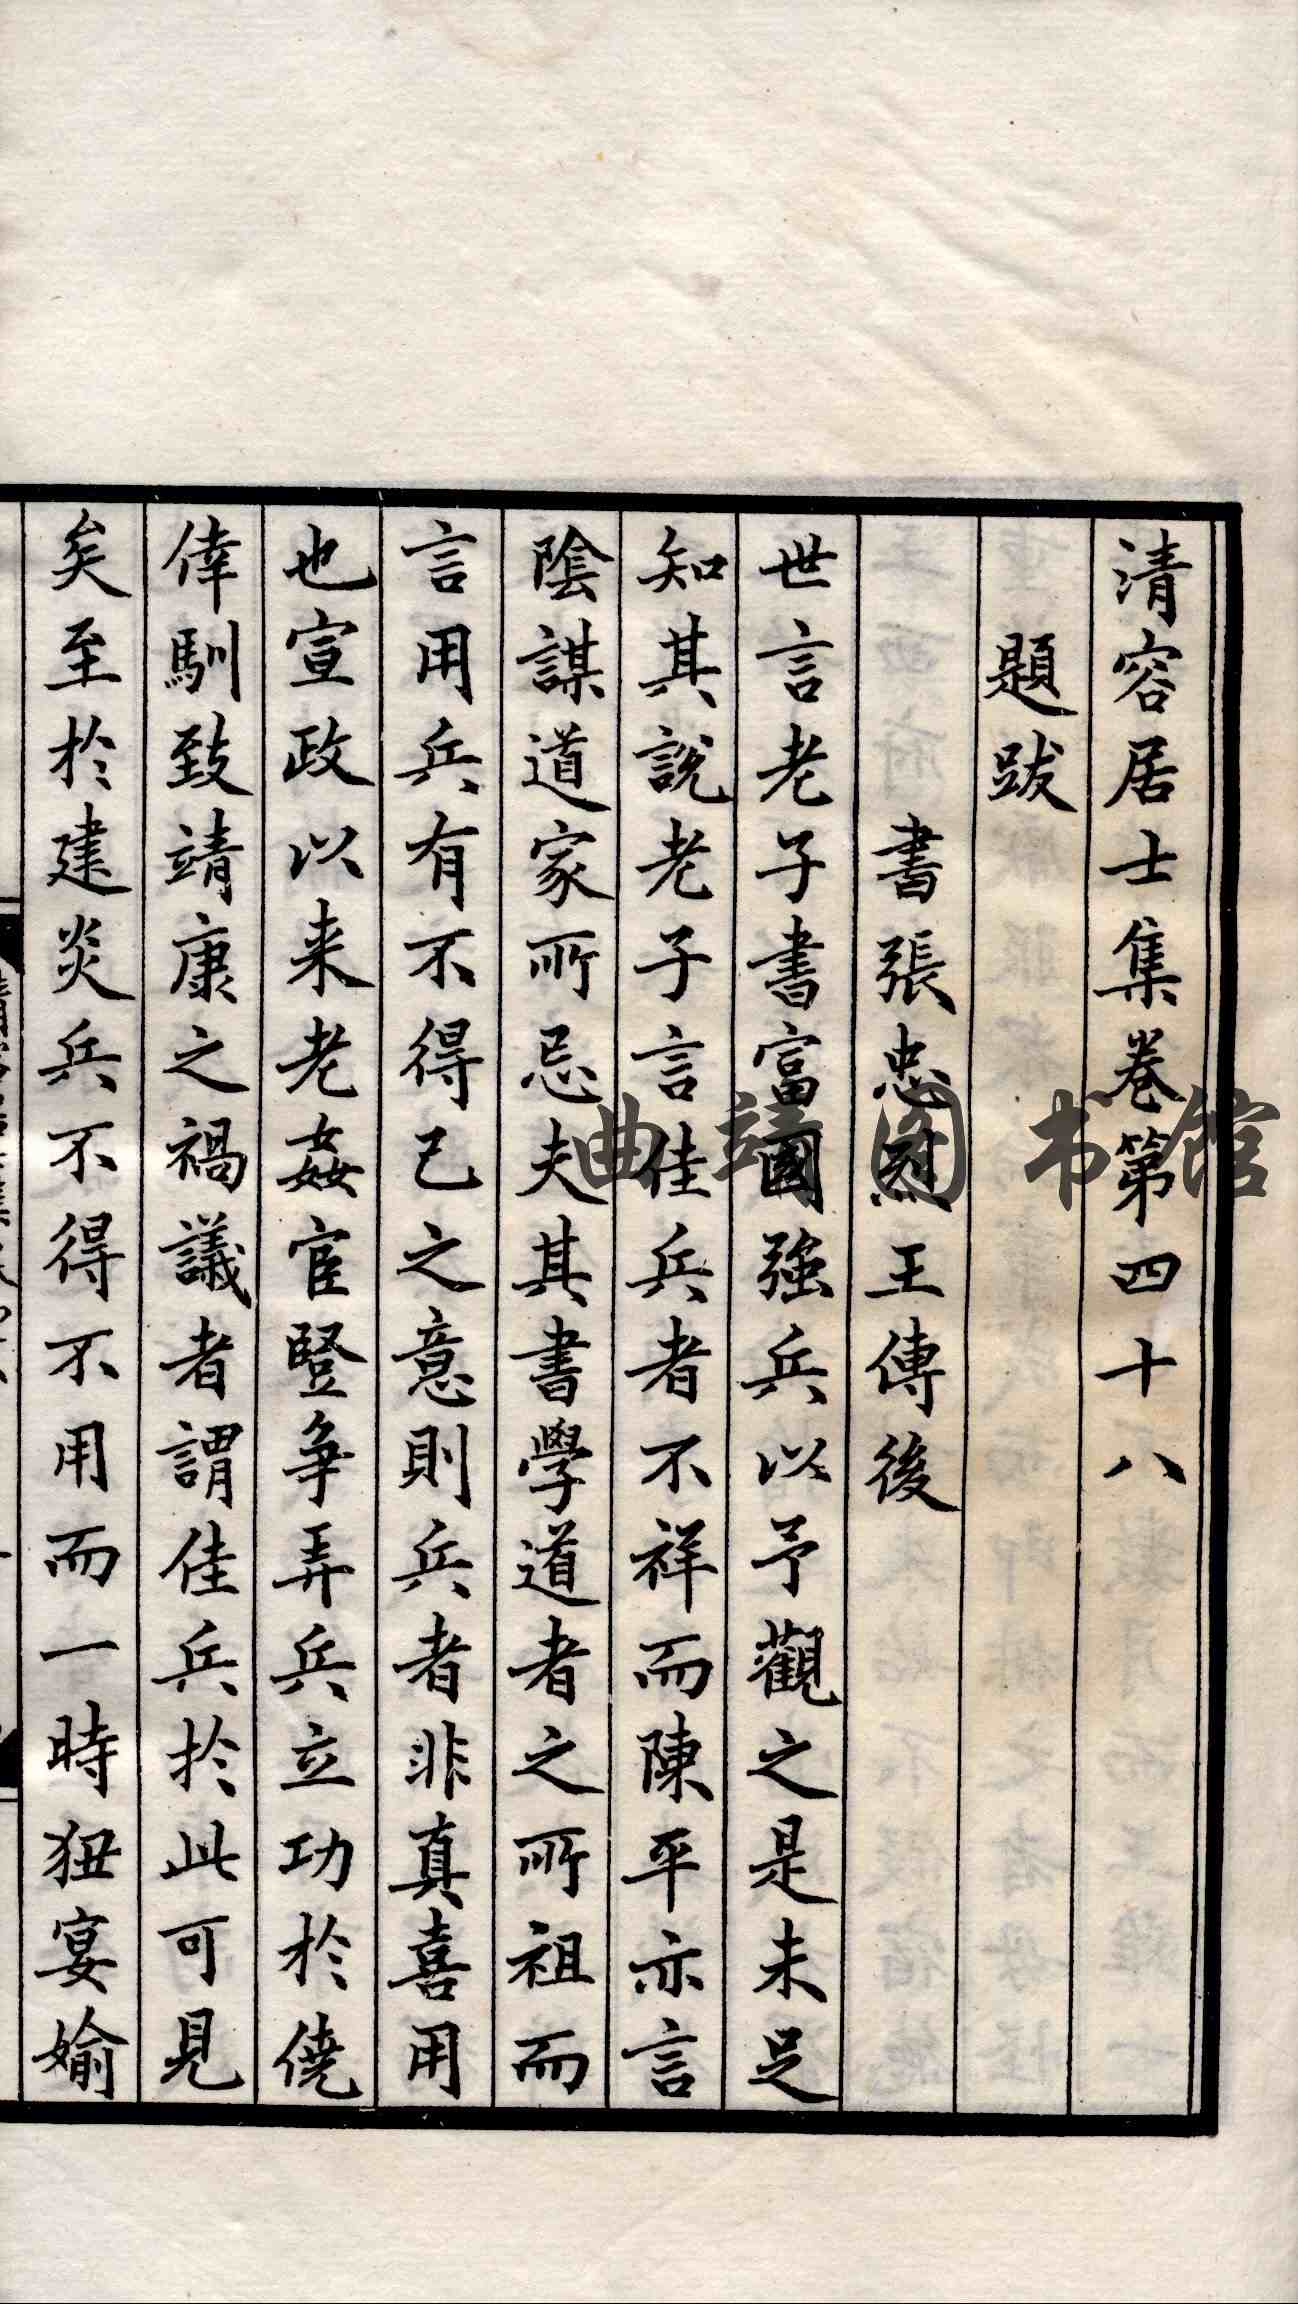 清容居士集卷第四十八
題跋
書張忠烈王傳後
世言老子書富國強兵以予觀之是未足
知其說老子言佳兵者不祥而陳平亦言
陰謀道家所忌夫其書學道者之所祖而
言用兵有不得已之意則兵者非真喜用
也宣政以来老姦宦豎爭弄兵立功於僥
倖馴致靖康之禍議者謂佳兵於此可見
矣至於建炎兵不得不用而一時狃宴媮
曲靖图书馆